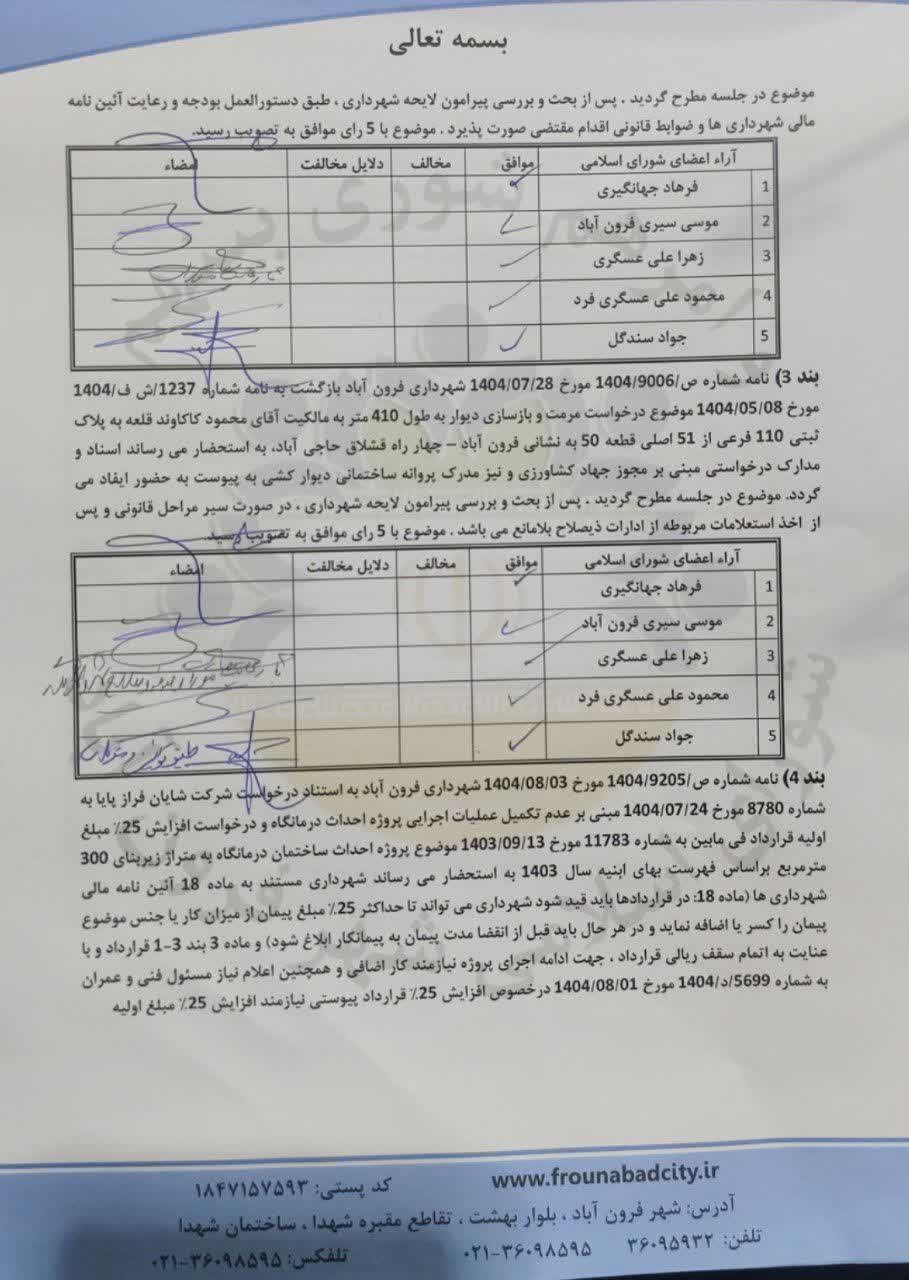 بسمه تعالی
موضوع در جلسه مطرح گردید . پس از بحث و بررسی پیرامون لایحه شهرداری ، طبق دستورالعمل بودجه و رعایت آئین نامه
مالی شهرداری ها و ضوابط قانونی اقدام مقتضی صورت پذیرد . موضوع با 5 رای موافق به تصویب رسید.
آراء اعضای شورای اسلامی موافق مخالف دلایل مخالفت امضاء
1 فرهاد جهانگیری
2 موسی سیری فرون آباد
3 زهرا علی عسگری
4 محمود علی عسگری فرد
5 جواد سندگل
بند 3) نامه شماره ص/1404/9006 مورخ 1404/07/28 شهرداری فرون آباد بازگشت به نامه شماره 1237/ش ف/1404
مورخ 1404/05/08 موضوع درخواست مرمت و بازسازی دیوار به طول 410 متر به مالکیت آقای محمود کاکاوند قلعه به پلاک
ثبتی 110 فرعی از 51 اصلی قطعه 50 به نشانی فرون آباد – چهار راه قشلاق حاجی آباد، به استحضار می رساند اسناد و
مدارک درخواستی مبنی بر مجوز جهاد کشاورزی و نیز مدرک پروانه ساختمانی دیوار کشی به پیوست به حضور ایفاد می
گردد. موضوع در جلسه مطرح گردید . پس از بحث و بررسی پیرامون لایحه شهرداری ، در صورت سیر مراحل قانونی و پس
از اخذ استعلامات مربوطه از ادارات ذیصلاح بلامانع می باشد . موضوع با 5 رای موافق به تصویب رسید.
آراء اعضای شورای اسلامی موافق مخالف دلایل مخالفت امضاء
1 فرهاد جهانگیری
2 موسی سیری فرون آباد
3 زهرا علی عسگری
4 محمود علی عسگری فرد
5 جواد سندگل
بند 4) نامه شماره ص/1404/9205 مورخ 1404/08/03 شهرداری فرون آباد به استناد درخواست شرکت شایان فراز پایا به
شماره 8780 مورخ 1404/07/24 مبنی بر عدم تکمیل عملیات اجرایی پروژه احداث درمانگاه و درخواست افزایش 25٪ مبلغ
اولیه قرارداد فی مابین به شماره 11783 مورخ 1403/09/13 موضوع پروژه احداث ساختمان درمانگاه به متراژ زیربنای 300
مترمربع براساس فهرست بهای ابنیه سال 1403 به استحضار می رساند شهرداری مستند به ماده 18 آئین نامه مالی
شهرداری ها (ماده 18: در قراردادها باید قید شود شهرداری می تواند تا حداکثر 25٪ مبلغ پیمان از میزان کار یا جنس موضوع
پیمان را کسر یا اضافه نماید و در هر حال باید قبل از انقضا مدت پیمان به پیمانکار ابلاغ شود) و ماده 3 بند 3-1 قرارداد و با
عنایت به اتمام سقف ریالی قرارداد ، جهت ادامه اجرای پروژه نیازمند کار اضافی و همچنین اعلام نیاز مسئول فنی و عمران
به شماره 5699/د/1404 مورخ 1404/08/01 درخصوص افزایش 25٪ قرارداد پیوستی نیازمند افزایش 25٪ مبلغ اولیه
www.frounabadcity.ir کد پستی: ۱۸۴۷۱۵۷۵۹۳
آدرس: شهر فرون آباد ، بلوار بهشت ، تقاطع مقبره شهدا ، ساختمان شهدا
تلفن: ۳۶۰۹۵۹۳۲ ۰۲۱-۳۶۰۹۸۵۹۵ تلفکس: ۰۲۱-۳۶۰۹۸۵۹۵